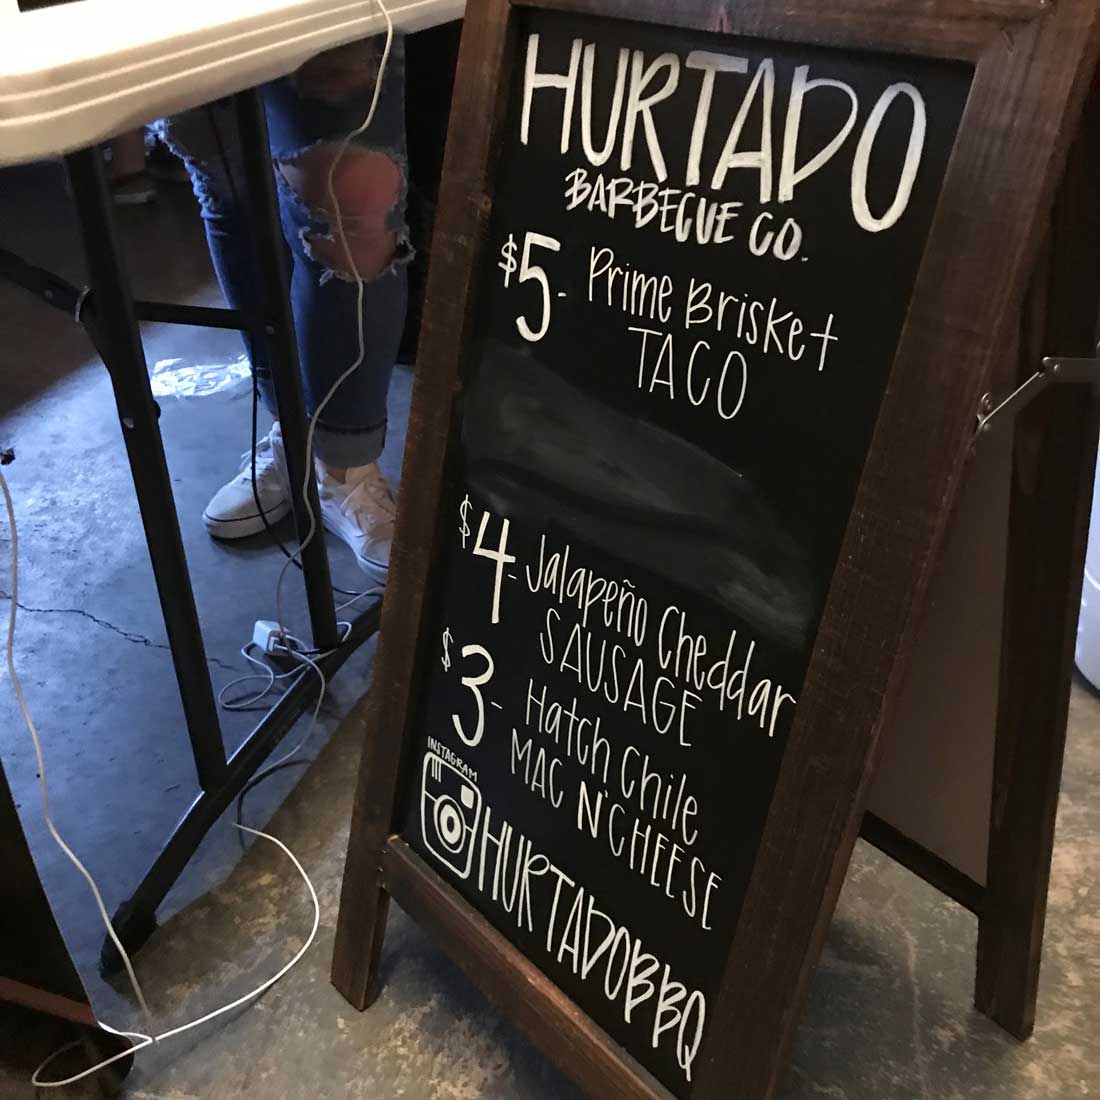 HURTADO
BARBECUE CO.
$5- Prime Brisket
TACO
$4- Jalapeño Cheddar
SAUSAGE
$3- Hatch Chile
MAC N' CHEESE
INSTAGRAM
HURTADOBBQ